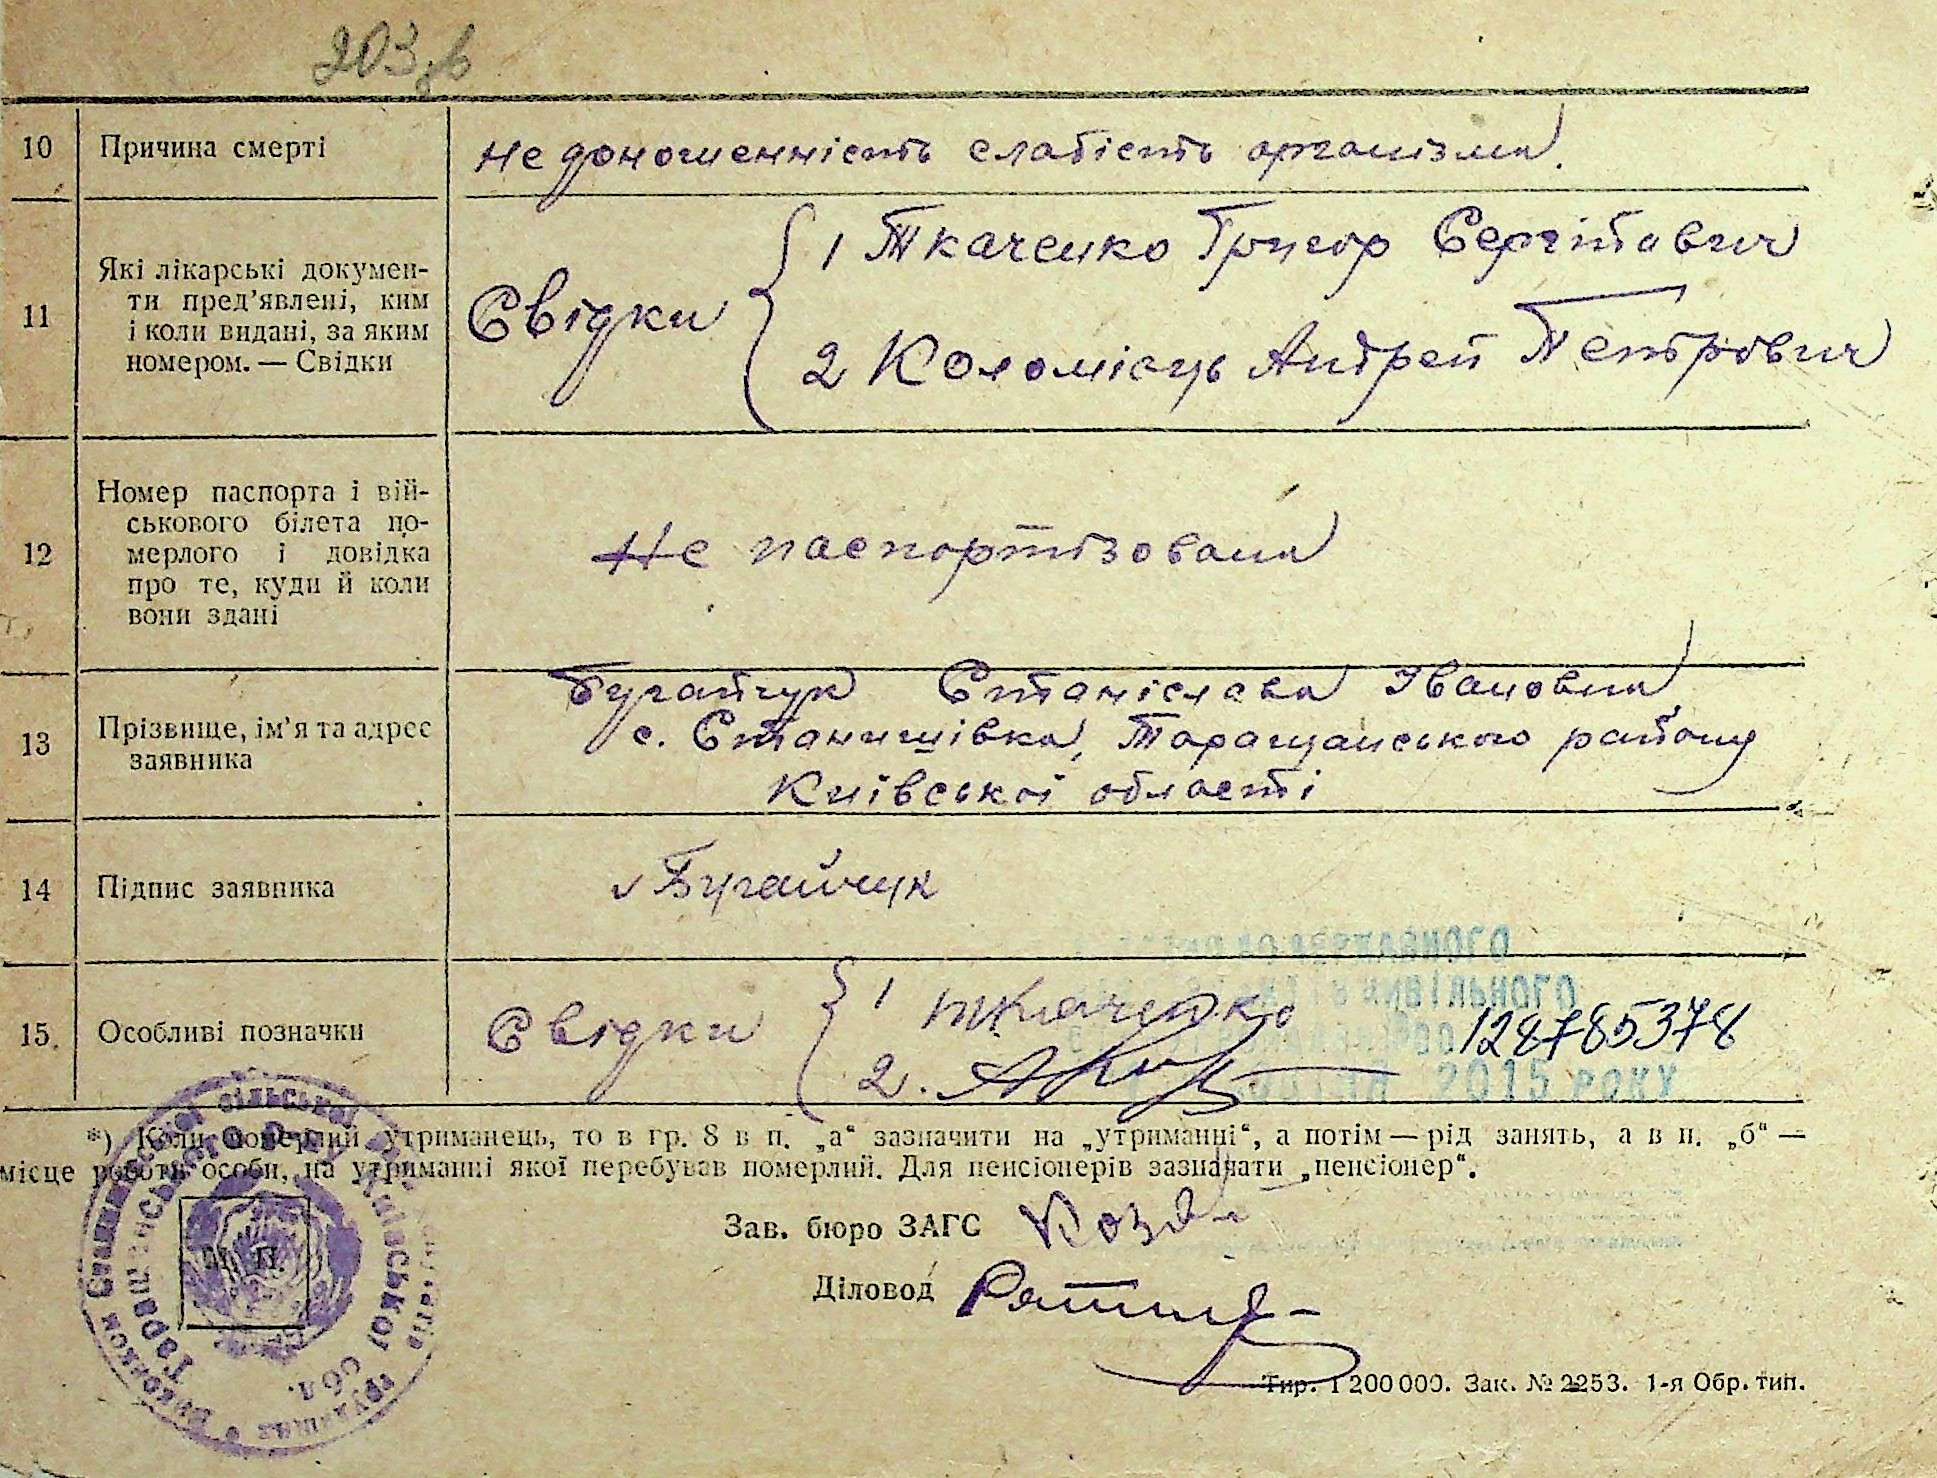 203 зв
10 Причина смерті Недоношенність слабість организма.
11 Які лікарські докумен-
ти пред’явлені, ким
і коли видані, за яким
номером. — Свідки
Свідки
1 Ткаченко Григор Сергійович
2 Коломієць Андрей Петрович
12 Номер паспорта і вій-
ськового білета по-
мерлого і довідка
про те, куди й коли
вони здані
Не паспортізована
13 Прізвище, ім’я та адрес
заявника
Бугайчук Станіслава Івановна
с. Станишівка, Таращанського району
Київської області
14 Підпис заявника Бугайчук
15. Особливі позначки Свідки
1 Ткаченко
2.
128785378
2015 РОКУ
*) Коли померлий утриманець, то в гр. 8 в п. „а“ зазначити на „утриманні“, а потім — рід занять, а в п. „б“ —
місце роботи особи, на утриманні якої перебував померлий. Для пенсіонерів зазначати „пенсіонер“.
Зав. бюро ЗАГС
Діловод
М. П.
Тир. 1 200 000. Зак. № 2253. 1-я Обр. тип.